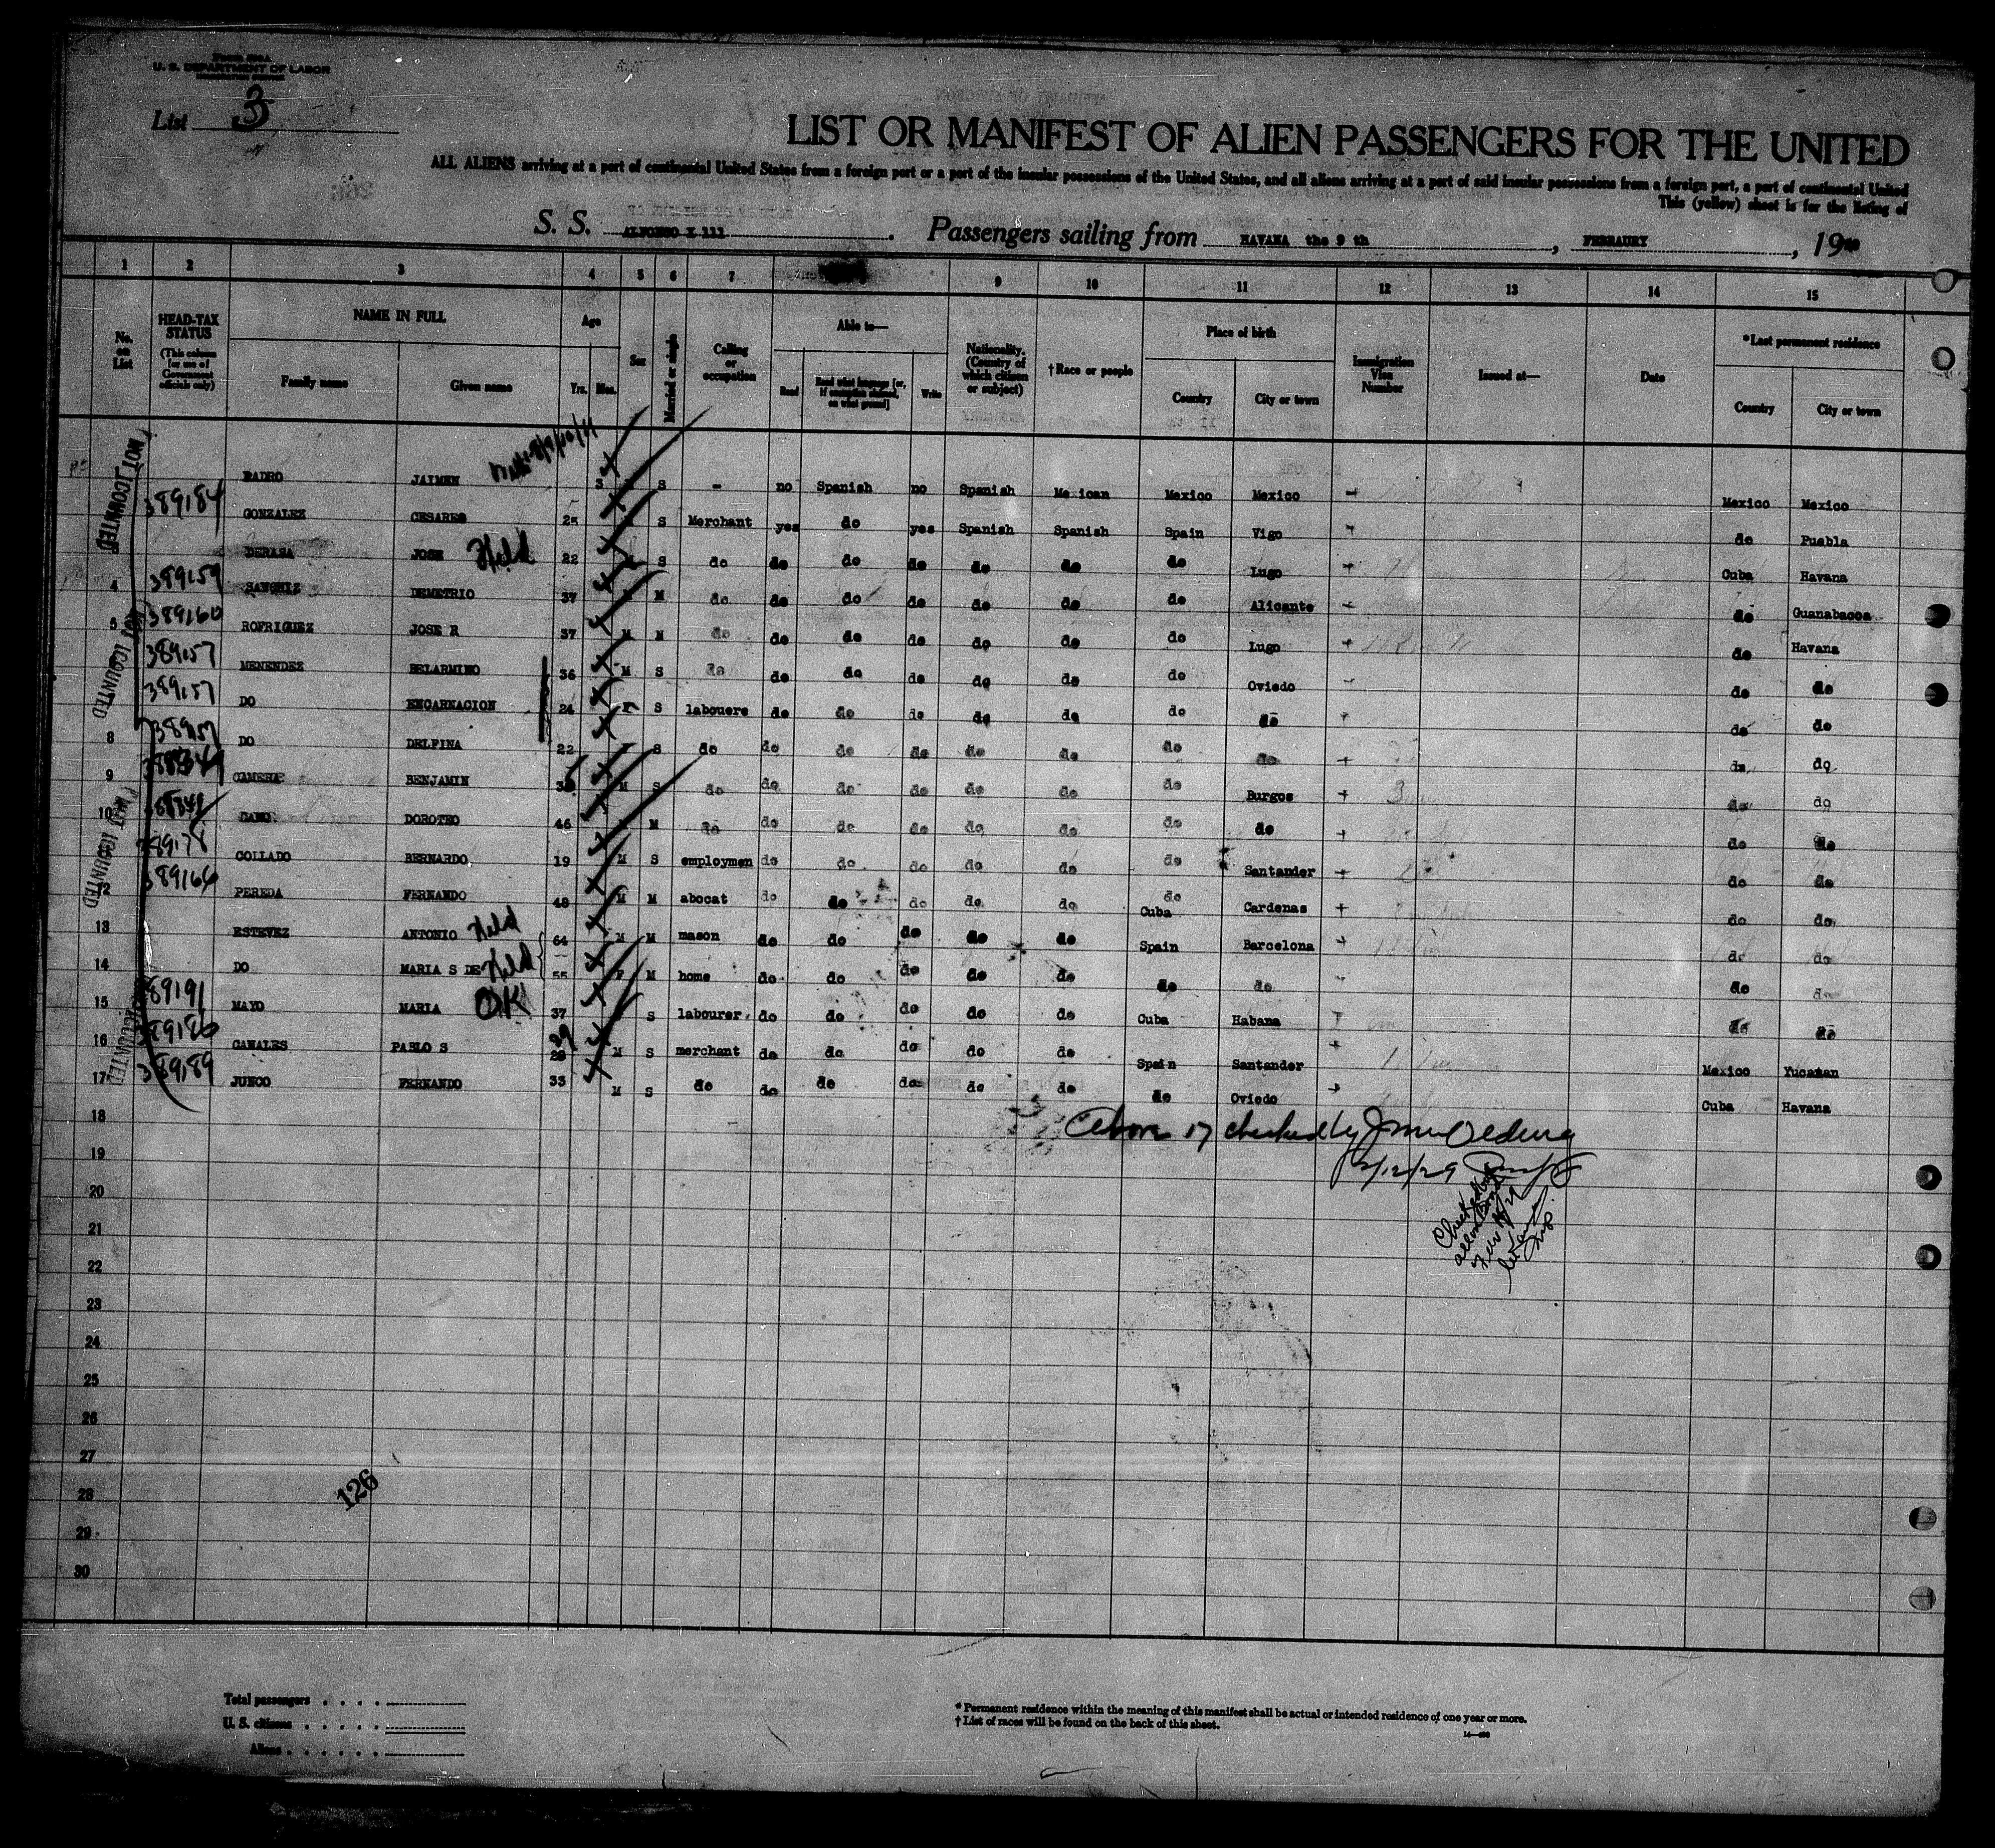 U. S. DEPARTMENT OF LABOR
List 3
LIST OR MANIFEST OF ALIEN PASSENGERS FOR THE UNITED
ALL ALIENS arriving at a port of continental United States from a foreign port or a port of the insular possessions of the United States, and all aliens arriving at a port of said insular possessions from a foreign port, a port of continental United
This (yellow) sheet is for the listing of
S. S. ALFONSO X 111 . Passengers sailing from HAVANA the 9 th , FEBRAURY , 19
1 2 3 4 5 6 7 9 10 11 12 13 14 15
No. on List
HEAD-TAX STATUS
(This column for use of Government officials only)
NAME IN FULL
Family name Given name
Age
Yrs. Mos.
Sex
Married or single
Calling or occupation
Able to—
Read Read what language [or, if exemption claimed, on what ground] Write
Nationality. (Country of which citizen or subject)
† Race or people
Place of birth
Country City or town
Immigration Visa Number
Issued at—
Date
*Last permanent residence
Country City or town
JAIMEN 3 S - no Spanish no Spanish Mexican Mexico Mexico Mexico Mexico
389184 GONZALEZ CESARES 25 S Merchant yes do yes Spanish Spanish Spain Vigo do Puebla
JOSE Held 22 S do do do do do do do Lugo Cuba Havana
4 389159 DEMETRIO 37 M do do do do do do do Alicante do Guanabacoa
5 389160 ROFRIGUEZ JOSE R 37 M M do do do do do do do Lugo do Havana
389157 MENENDEZ BELARMINO 36 M S do do do do do do do Oviedo do do
389157 DO ENCARNACION 24 F S labouere do do do do do do do do do
8 38957 DO DELFINA 22 S do do do do do do do do do do
9 BENJAMIN M S do do do do do do do Burgos do do
10 DOROTEO 46 M do do do do do do do do do do
COLLADO BERNARDO 19 M S employmen do do do do do do Santander do do
12 389166 PEREDA FERNANDO 48 M M abocat do do do do do do Cuba Cardenas do do
13 ESTEVEZ ANTONIO Held 64 M M mason do do do do do Spain Barcelona do do
14 DO MARIA S DE Held 55 F M home do do do do do do do do do
15 89191 MAYO MARIA OK 37 S labourer do do do do do Cuba Habana do do
16 389186 CANALES PABLO S 29 M S merchant do do do do do Spain Santander Mexico Yucatan
17 389189 JUNCO FERNANDO 33 M S do do do do do do do Oviedo Cuba Havana
NOT COUNTED
NOT COUNTED
NOT COUNTED
COUNTED
18
Above 17 checked by
19
2/12/29
20
21
22
23
24
25
26
27
126
28
29
30
Total passengers . . . . .
U. S. citizens . . . . .
Aliens . . . . . .
* Permanent residence within the meaning of this manifest shall be actual or intended residence of one year or more.
† List of races will be found on the back of this sheet.